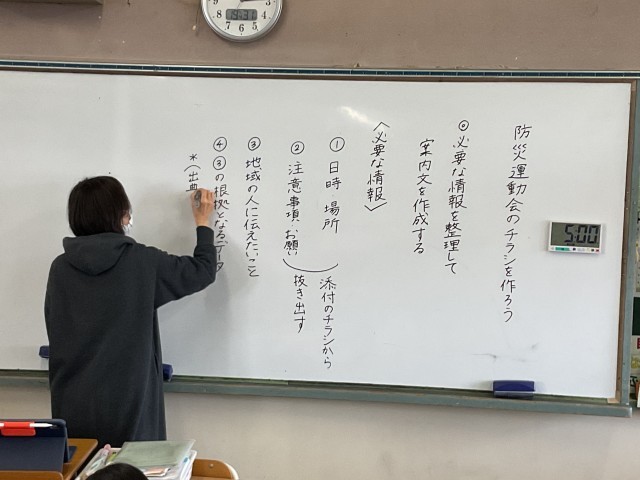 防災運動会のチラシを作ろう
◎必要な情報を整理して
案内文を作成する
〈必要な情報〉
① 日時 場所
② 注意事項、お願い
添付のチラシから
抜き出す
③ 地域の人に伝えたいこと
④ ③の根拠となるデータ
*(出典
5:00